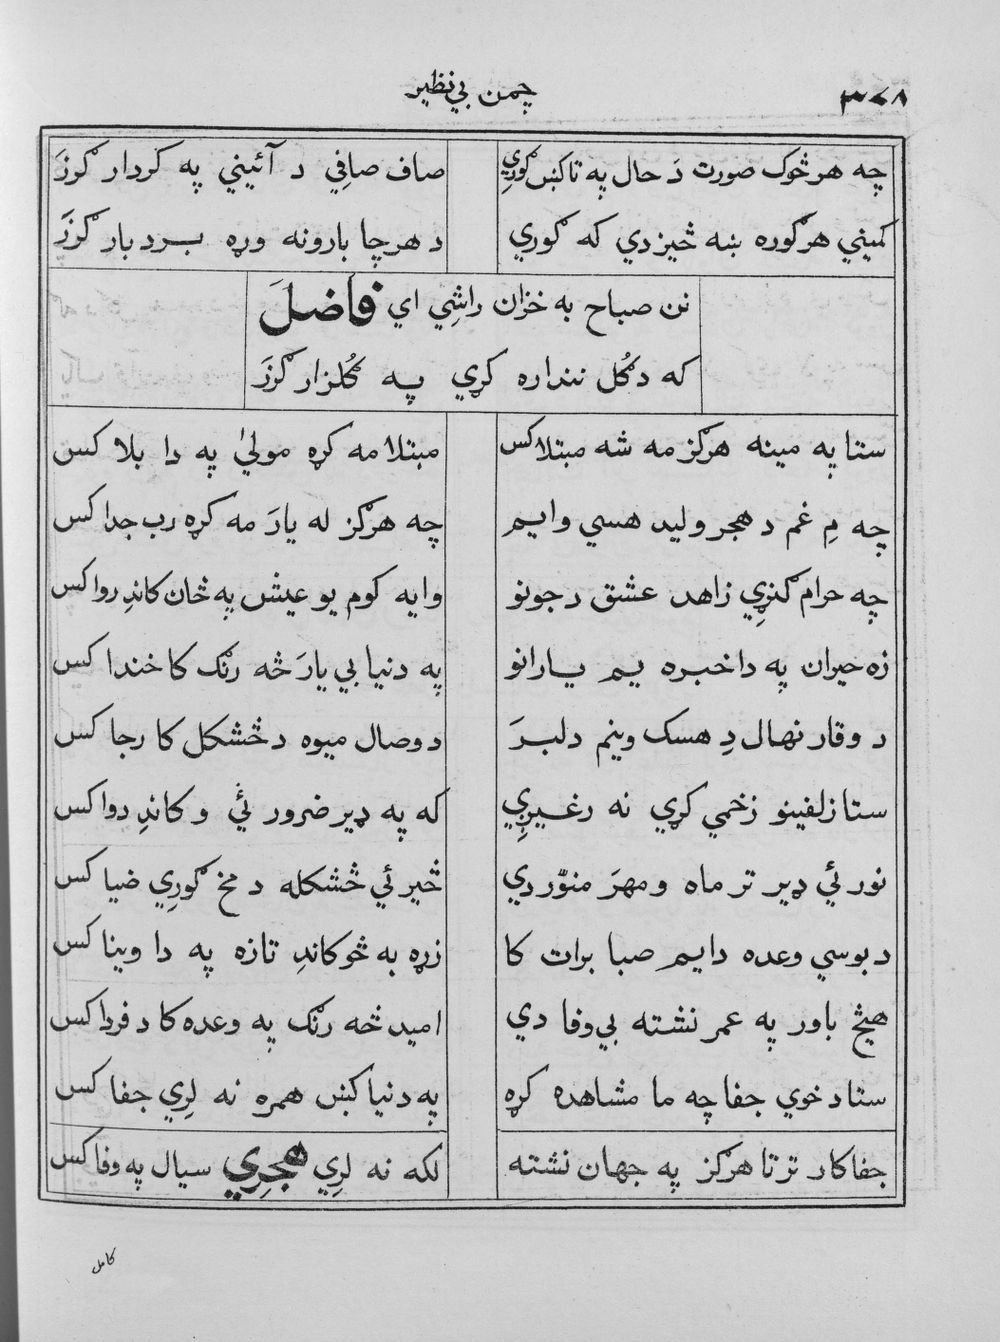 ٣٧٨
چمن بي‌نظير
چه هر څوک صورت دَ حال په تاکښ ګورِي
صاف صافِي د آئيني په کردار ګرزَ
کميني هر ګوره ښه څيز دي که ګوري
د هر چا بارونه وړه بردبار ګرزَ
نن صباح به خزان راشِي اي فاضلَ
که د ګُل ننداره کړي په ګلزار ګرزَ
ستا په مينه هرګز مه شه مبتلا کس
مبتلا مه کړه موليٰ په دا بلا کس
چه مِ غم د هجر وليد هسي وايم
چه هرګز له يارَ مه کړه رب جدا کس
چه حرام ګنړِي زاهد عشق د جونو
وايه کوم يو عيش په ځان کاندِ روا کس
زه حيران په دا خبره يم يارانو
په دنيا بي يارَ څه رنګ کا خندا کس
د وقار نهال دِ هسک وينم دلبرَ
د وصال ميوه د څشکل کا رجا کس
ستا زلفينو زخمي کړي نه رغيږِي
که په ډير ضرور ئي و کاندِ دوا کس
نور ئي ډير تر ماه و مهرَ منوّر دي
څير ئي څشکله د مخ ګورِي ضيا کس
د بوسي وعده دايم صبا برات کا
زړه به څو کاندِ تازه په دا وينا کس
هيڅ باور په عمر نشته بي‌وفا دي
اميد څه رنګ په وعده کا د فردا کس
ستا د خوي جفا چه ما مشاهده کړه
په دنيا کښ همره نه لرِي جفا کس
جفاکار تر تا هرګز په جهان نشته
لکه نه لرِي هجرِي سيال په وفا کس
کامل